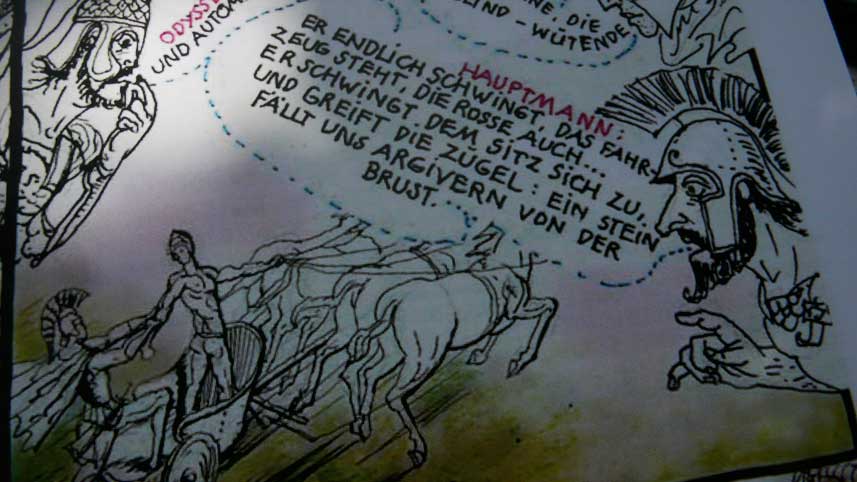 ODYSSE
UND AUTOM
NE, DIE
LIND - WÜTENDE
HAUPTMANN:
ER ENDLICH SCHWINGT, DAS FAHR-
ZEUG STEHT, DIE ROSSE AUCH...
ER SCHWINGT DEM SITZ SICH ZU,
UND GREIFT DIE ZÜGEL: EIN STEIN
FÄLLT UNS ARGIVERN VON DER
BRUST...